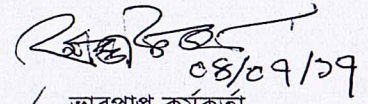 ০৪/০৭/১৭
ভারপ্রাপ্ত কর্মকর্তা